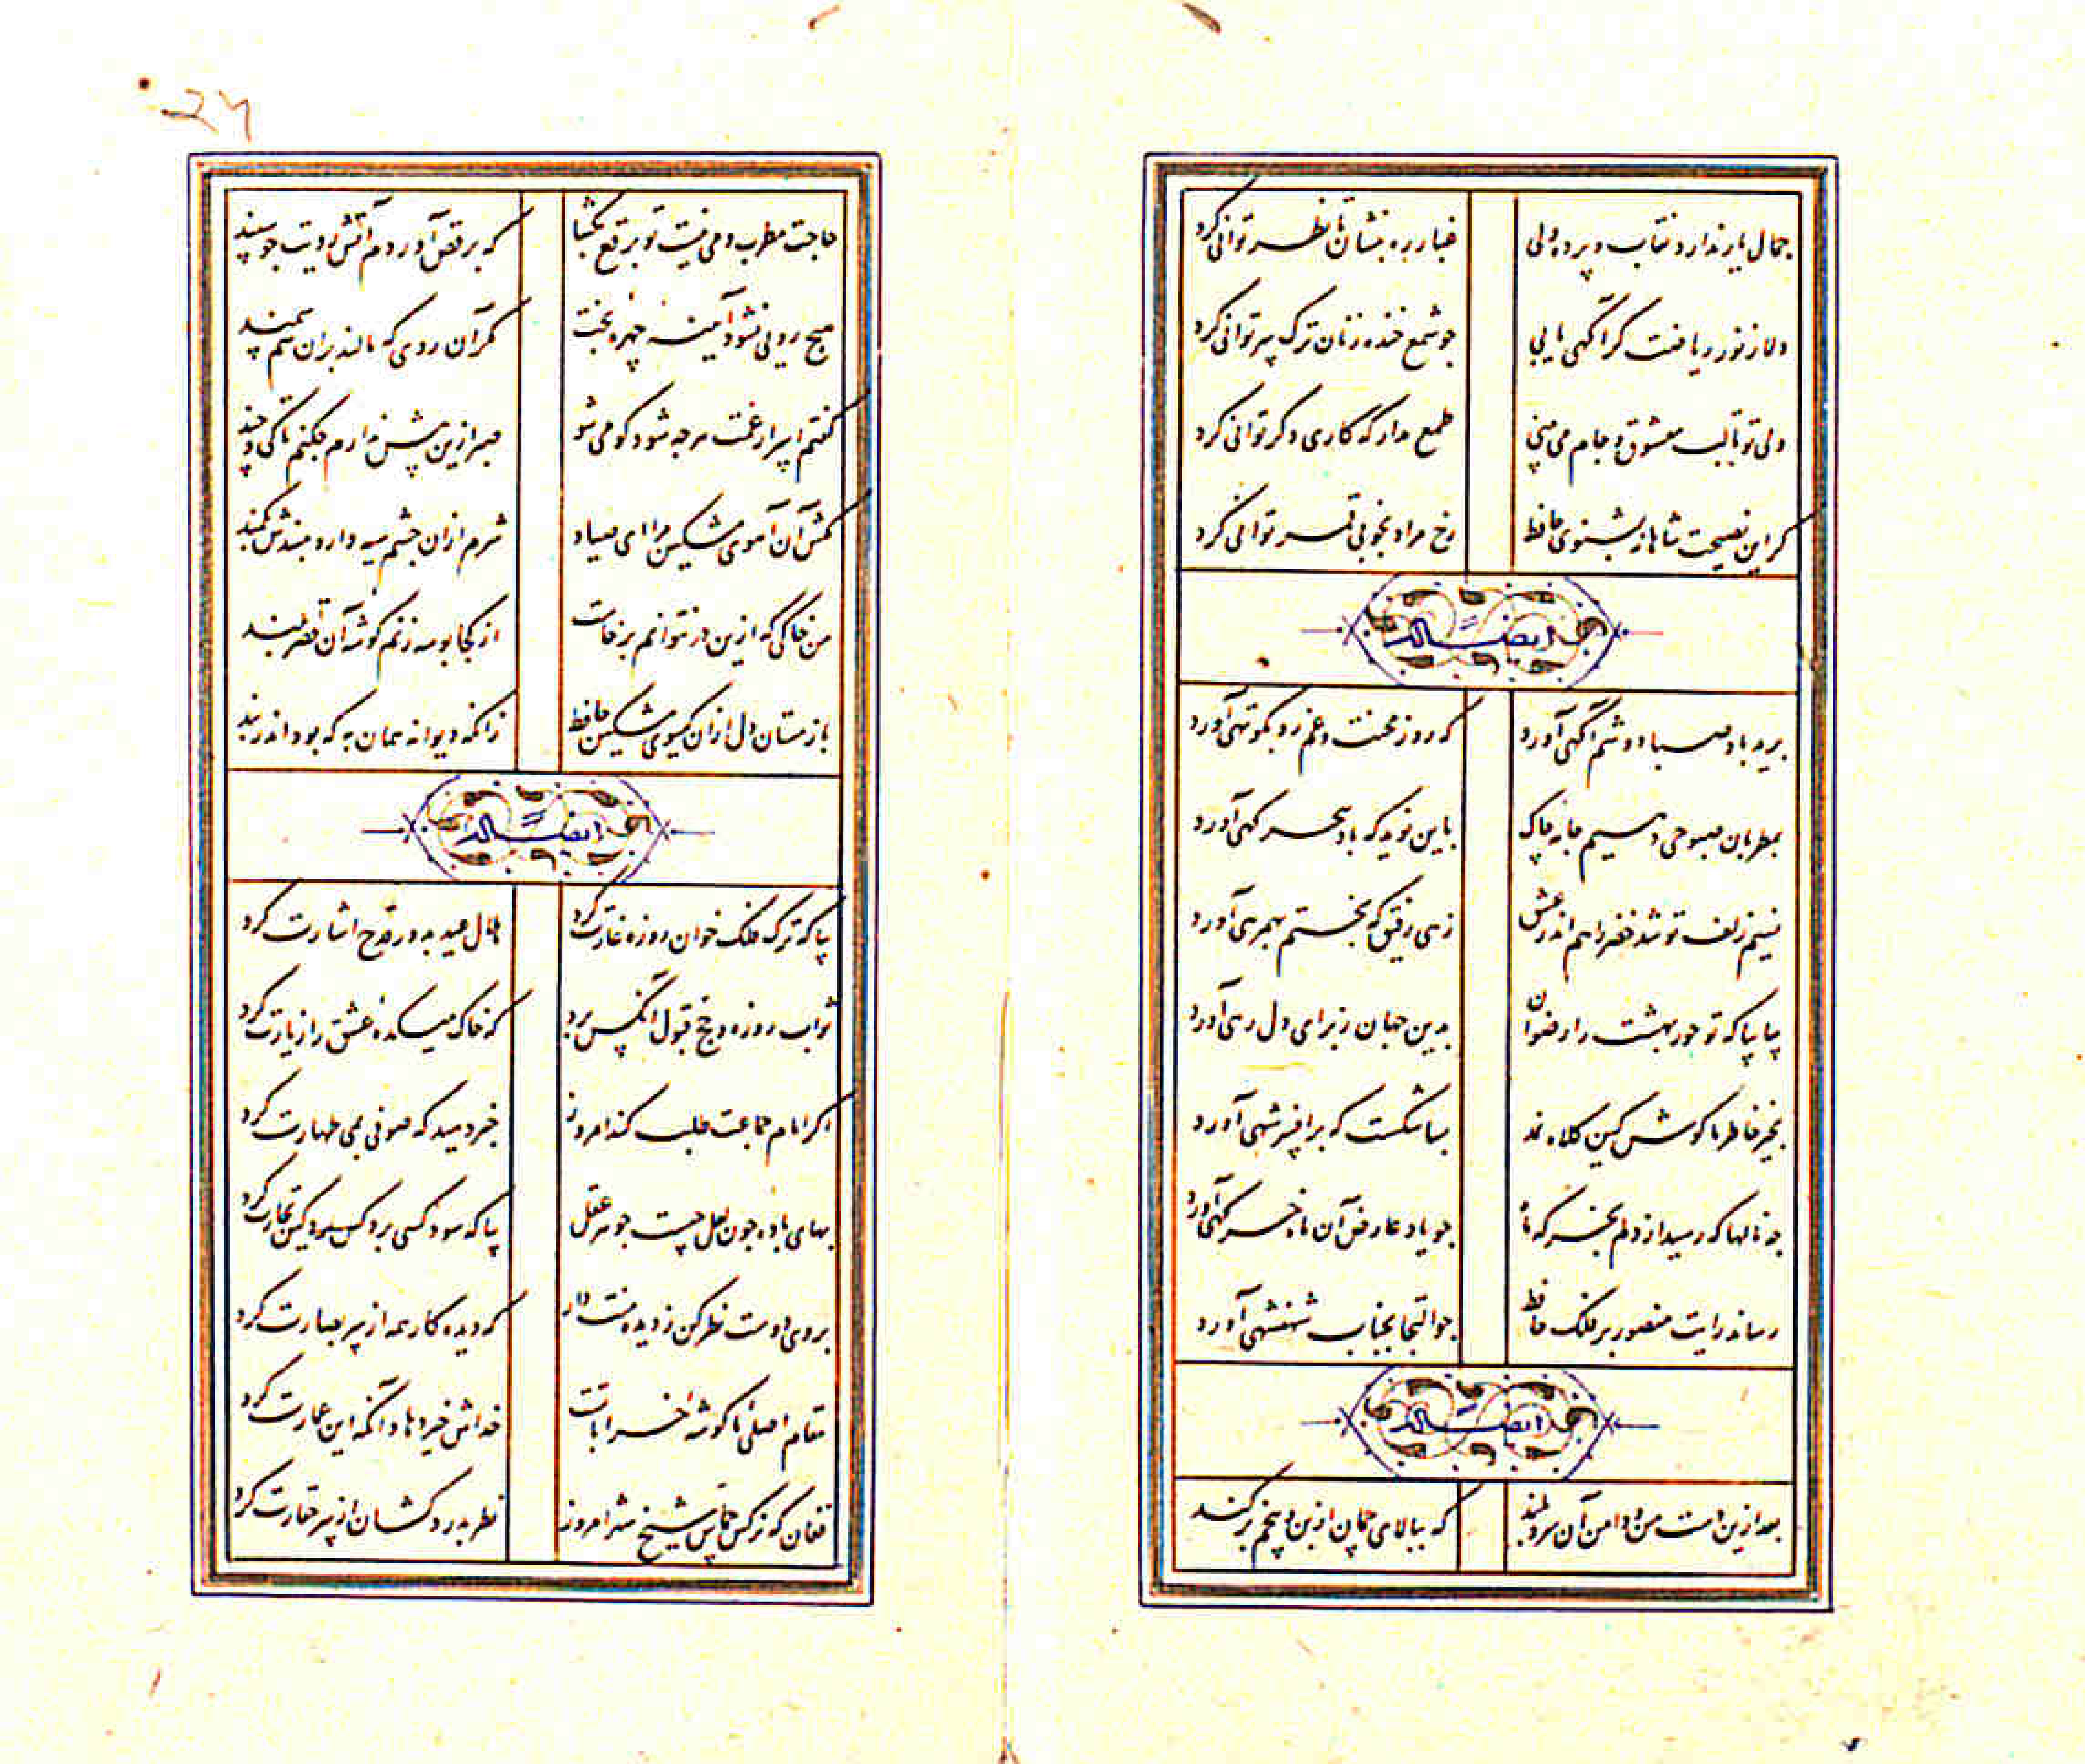 جمال یار ندارد نقاب و پرده ولی
غبار ره بنشان تا نظر توانی کرد
دلا ز نور ریاضت گر آگهی یابی
جو شمع خنده زنان ترک سر توانی کرد
ولی تو تا لب معشوق و جام می
طمع مدار که کاری دگر توانی کرد
گر این نصیحت شاهانه بشنوی حافظ
رخ مراد بخوبی قمر توانی کرد
ایضا له
برید باد صبا دوشم آگهی آورد
که روز محنت و غم رو بکوتهی آورد
بمطربان صبوحی دهیم جامه چاک
باین نوید که باد سحر کهی آورد
نسیم زلف تو شد خضر راهم اندر عشق
زهی رفیق که بختم بهمرهی آورد
بیا بیا که تو حور بهشت را رضوان
بدین جهان ز برای دل رهی آورد
بخیر خاطر ما کوش کین کلاه نمد
بسا شکست که بر افسر شهی آورد
چه نالها که رسید از دلم بخرکه ماه
جو یاد عارض آن ماه خرکهی آورد
رساند رایت منصور بر فلک حافظ
جو التجا بجناب شهنشهی آورد
ایضا له
بعد ازین دست من و دامن آن سرو بلند
که ببالای چمان از بن و بیخم بر کند
۲۴
حاجت مطرب و می نیست تو برقع بکشا
که برقص آوردم آتش رویت جو سپند
هیچ رویی نشود آینه چهره بخت
مکر آن روی که مالند بران سم سمند
کفتم اسرار غمت هر چه شود کو می شو
صبر ازین بیش ندارم چکنم تا کی و چند
مکش آن آهوی مشکین مرا ای صیاد
شرم ازان چشم سیه دار و مبندش بکمند
من خاکی که ازین در نتوانم برخاست
از کجا بوسه زنم کوشه آن قصر بلند
باز مستان دل ازان کیسوی مشکین حافظ
زانکه دیوانه همان به که بود اندر بند
ایضا له
بیا که ترک فلک خوان روزه غارت کرد
هلال عید به دور قدح اشارت کرد
ثواب روزه و حج قبول آنکس برد
که خاک میکده عشق را زیارت کرد
اکر امام جماعت طلب کند امروز
خبر دهید که صوفی بمی طهارت کرد
بهای باده چون لعل چیست جوهر عقل
بیا که سود کسی برد کین تجارت کرد
بروی دوست نظر کن ز دیده منت دار
که دیده کار همه از سر بصارت کرد
مقام اصلی ما کوشه خراباتست
خداش خیر دهاد آنکه این عمارت کرد
فغان که نرکس جماش شیخ شهر امروز
نظر بدردکشان از سر حقارت کرد